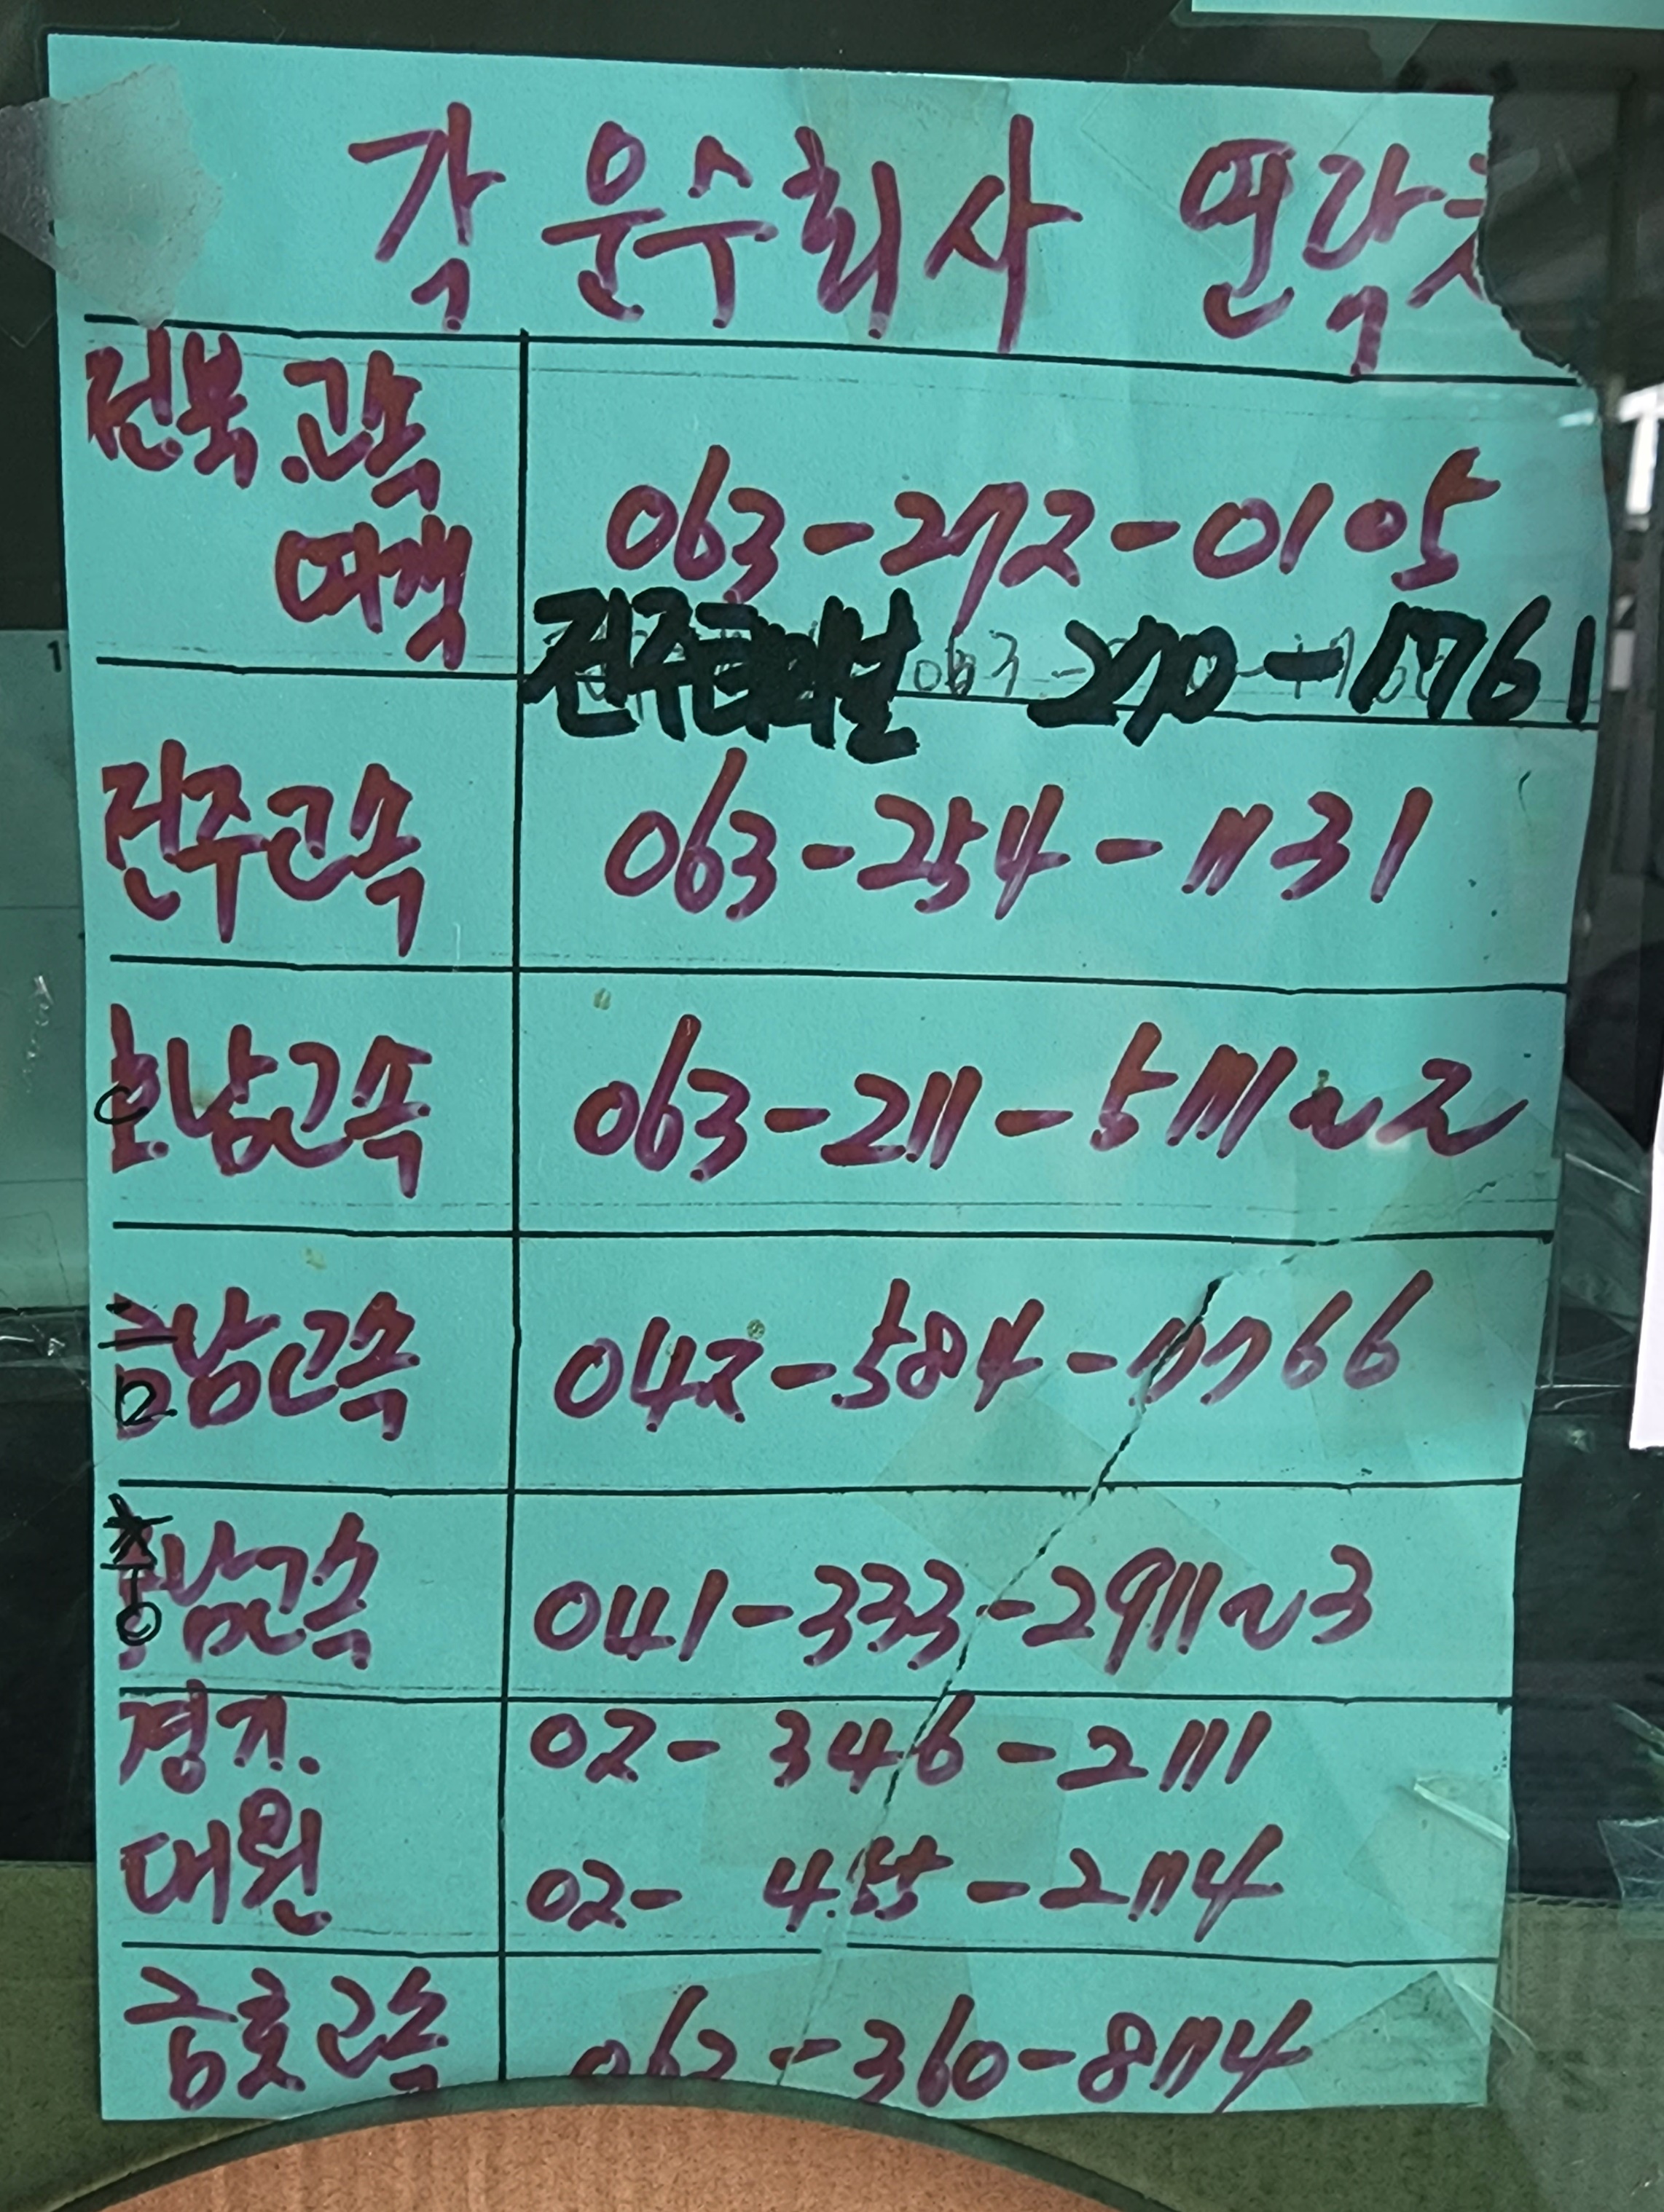 각 운수회사 연락
전북 고속
여객
063-272-0105
전주터미널 063 270-1761
전주고속 063-254-1131
호남고속 063-211-5111~2
금남고속 042-584-7766
충남고속 041-333-2911~3
경기. 02-346-2111
대원 02-455-2114
금호고속 062-360-8114